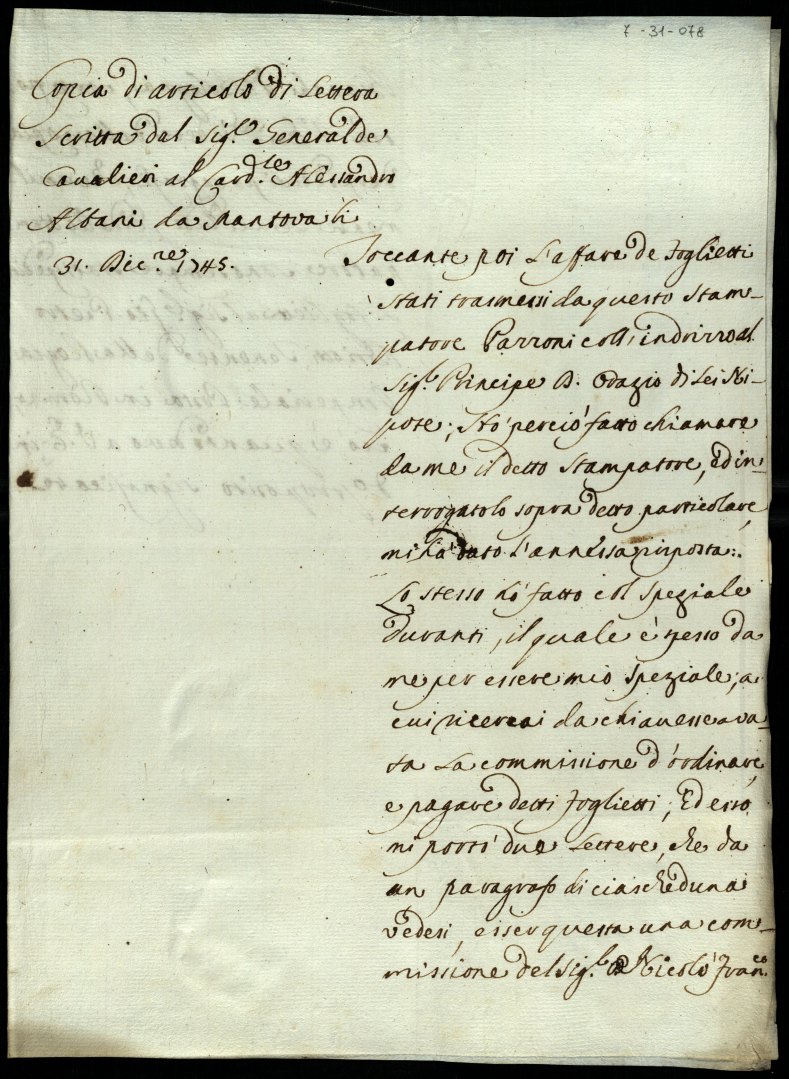 7-31-078
Copia di articolo di Lettera
scritta dal Sig.r General de
Cavalieri al Card.le Alessandro
Albani da Mantova li
31. Dic.re 1745.
Toccante poi l'affare de foglietti
stati trasmessi da questo Stam-
patore Pazzoni coll'indrizzo al
Sig.r Principe D. Orazio di Lei Ni-
pote; Hò perciò fatto chiamare
da me il detto Stampatore, Ed in-
terrogatolo sopra detto particolare,
mi hà dato l'annessa risposta:
Lo stesso hò fatto col Speziale
Duranti, il quale è spesso da
me per essere mio Speziale, a
cui ricercai da chi avesse avu-
ta la commissione d'ordinare,
e pagare detti foglietti; Ed esso
mi portò due Lettere, che da
un paragrafo di ciascheduna
vedesi, esser questa una com-
missione del Sig.r Nicolò Fran.co